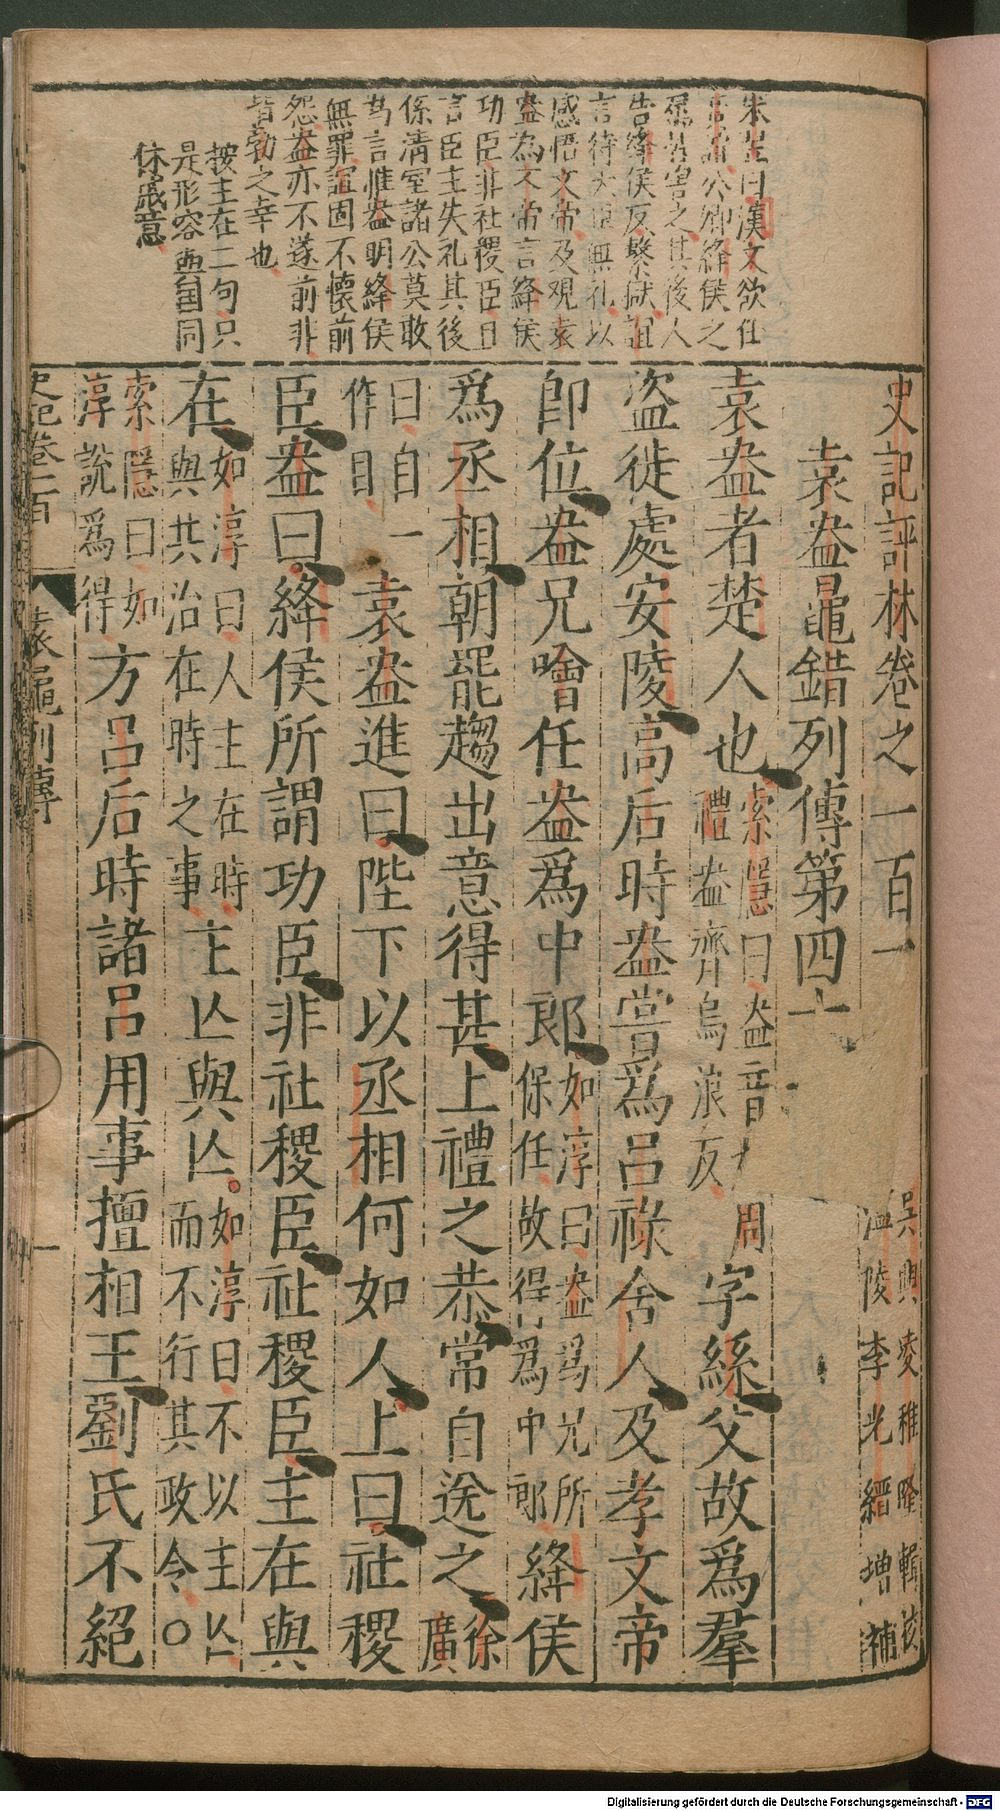 史記評林卷之一百一
吳興凌稚隆輯校
李光縉增補
袁盎鼂錯列傳第四十
袁盎者楚人也
索隱曰盎音
禮盎齊烏浪反
周
字絲父故爲羣
盜徙處安陵高后時盎嘗爲呂祿舍人及孝文帝
卽位盎兄噲任盎爲中郎
如淳曰盎爲兄所
保任故得爲中郎
絳侯
爲丞相朝罷趨出意得甚上禮之恭常自送之
徐
廣
曰自一
作目
袁盎進曰陛下以丞相何如人上曰社稷
臣盎曰絳侯所謂功臣非社稷臣社稷臣主在與
在
如淳曰人主在時
與共治在時之事
主亾與亾
如淳曰不以主亾
而不行其政令○
索隱曰如
淳說爲得
方呂后時諸呂用事擅相王劉氏不絕
史記卷一百一
袁鼂列傳
一
曰漢文欲任
公卿絳侯之
害之其後人
告絳侯反繫獄誼
言待大臣無礼以
感悟文帝及觀袁
盎為文帝言絳侯
功臣非社稷臣且
言臣主失礼其後
係清室諸公莫敢
為言惟盎明絳侯
無罪誼固不懷前
怨盎亦不遂前非
皆勃之幸也
按主在二句只
是形容與國同
休戚意
Digitalisierung gefördert durch die Deutsche Forschungsgemeinschaft - DFG